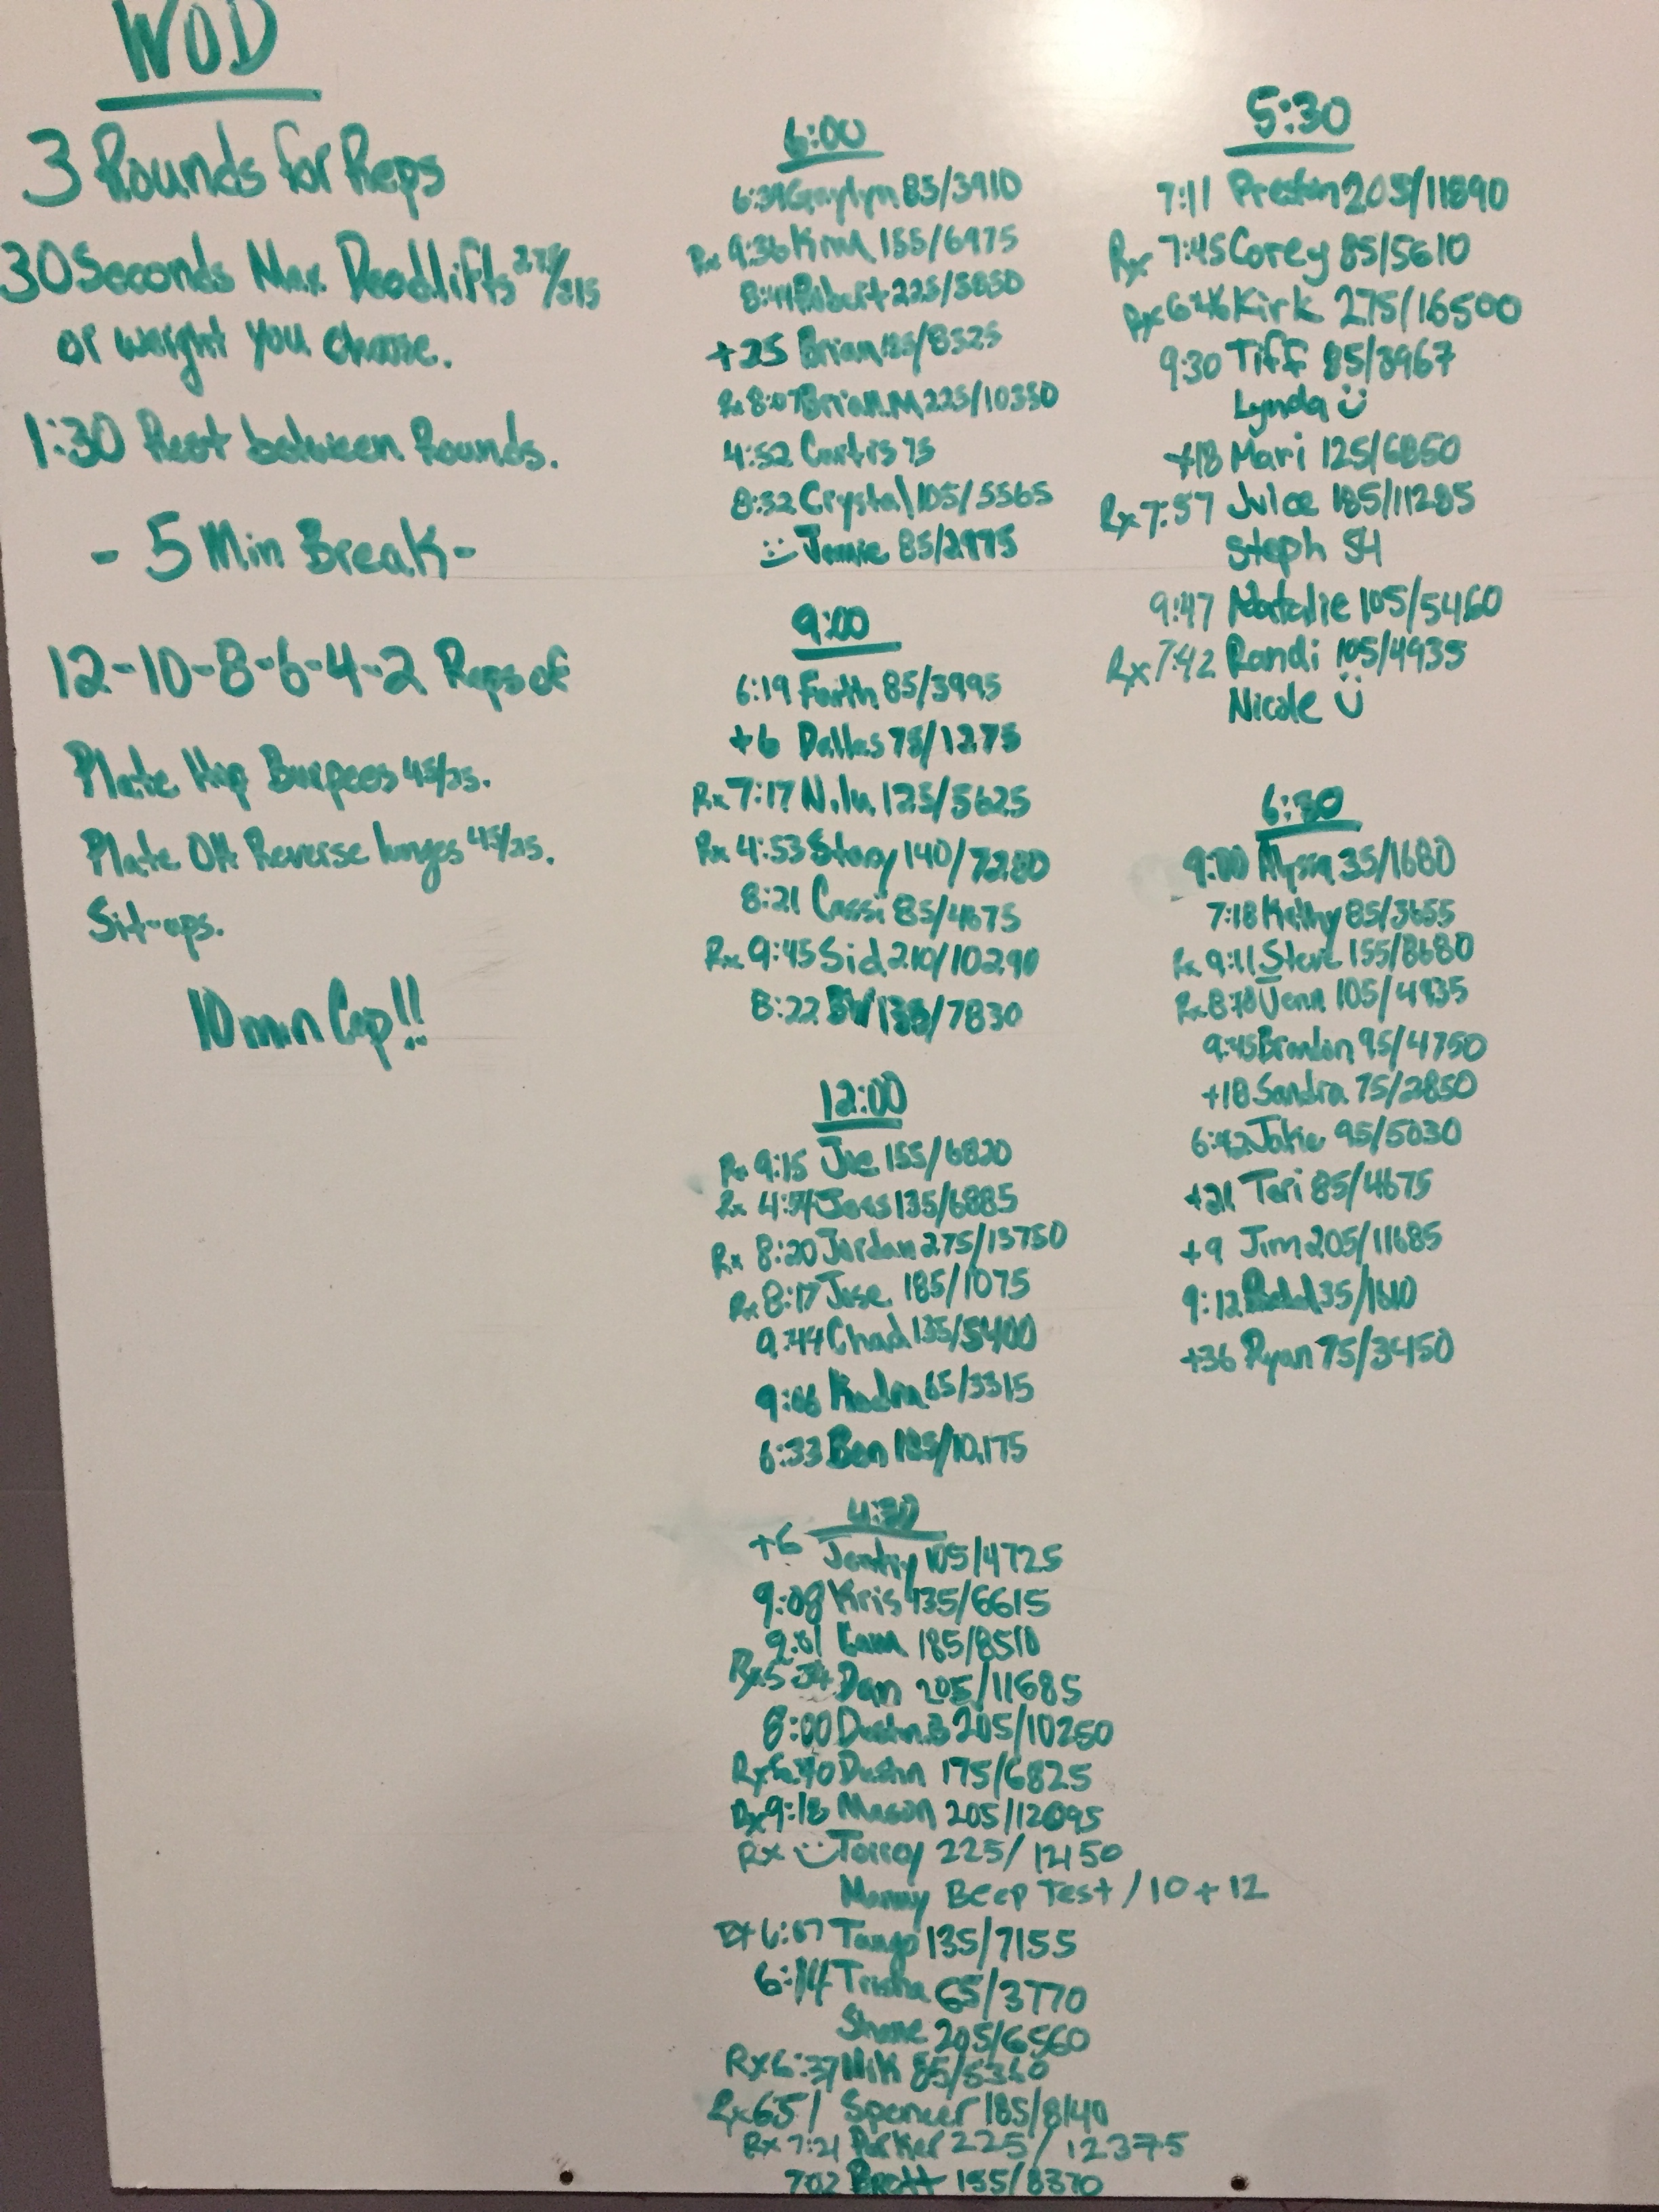 WOD
3 Rounds for Reps
30 Seconds Max Deadlifts
or weight you choose.
1:30 Rest between Rounds.
- 5 Min Break -
12-10-8-6-4-2 Reps of
Plate Hop Burpees 45/25.
Plate OH Reverse lunges 45/25.
Sit-ups.
10 min Cap!!
6:00
6:39 85/3910
Rx 9:36 Kim 155/6975
8:41 Robert 225/5850
+25 Brian /8325
Rx 8:07 Brian M 225/10350
4:52 Curtis 75
8:32 Crystal 105/5565
Jamie 85/2975
9:00
6:19 Faith 85/3995
+6 Dallas 75/1275
Rx 7:17 125/5625
Rx 4:53 Stacy 140/7280
8:21 Cassi 85/4675
Rx 9:45 Sid 210/10290
8:22 135/7830
12:00
Rx 9:15 Joe 155/6820
Rx Jess 135/6885
Rx 8:20 Jordan 275/13750
Rx 8:17 Jose 185/1075
9:44 Chad 135/5400
9:06 65/3315
6:33 Ben 185/10,175
4:30
+6 105/4725
9:08 Kris 135/6615
9:01 Cam 185/8510
Rx 5:34 Dan 205/11685
8:00 Dustin B 205/10250
Rx Dustin 175/6825
Rx 9:18 Mason 205/12095
Rx Torrey 225/12150
Manny Beep Test / 10 + 12
6:07 Tango 135/7155
6:14 Trisha 65/3770
Shane 205/6560
Rx 6:37 Nik 85/5360
Rx 651 Spencer 185/8140
Rx 7:21 Parker 225/12375
702 Brett 155/8370
5:30
7:11 Preston 205/11890
Rx 7:45 Corey 85/5610
Rx 6:46 Kirk 275/16500
9:30 Tiff 85/3967
Lynda
+18 Mari 125/6850
Rx 7:57 Juice 185/11285
Steph
9:47 Natalie 105/5460
Rx 7:42 Randi 105/4935
Nicole
6:30
9:00 Alyssa 35/1680
7:18 Kathy 85/3655
Rx 9:11 Steve 155/8680
Rx Jenn 105/4935
9:45 Brandon 95/4750
+18 Sandra 75/2850
6:42 Jakie 95/5030
+21 Teri 85/4675
+9 Jim 205/11685
9:12 35/1610
+36 Ryan 75/3450